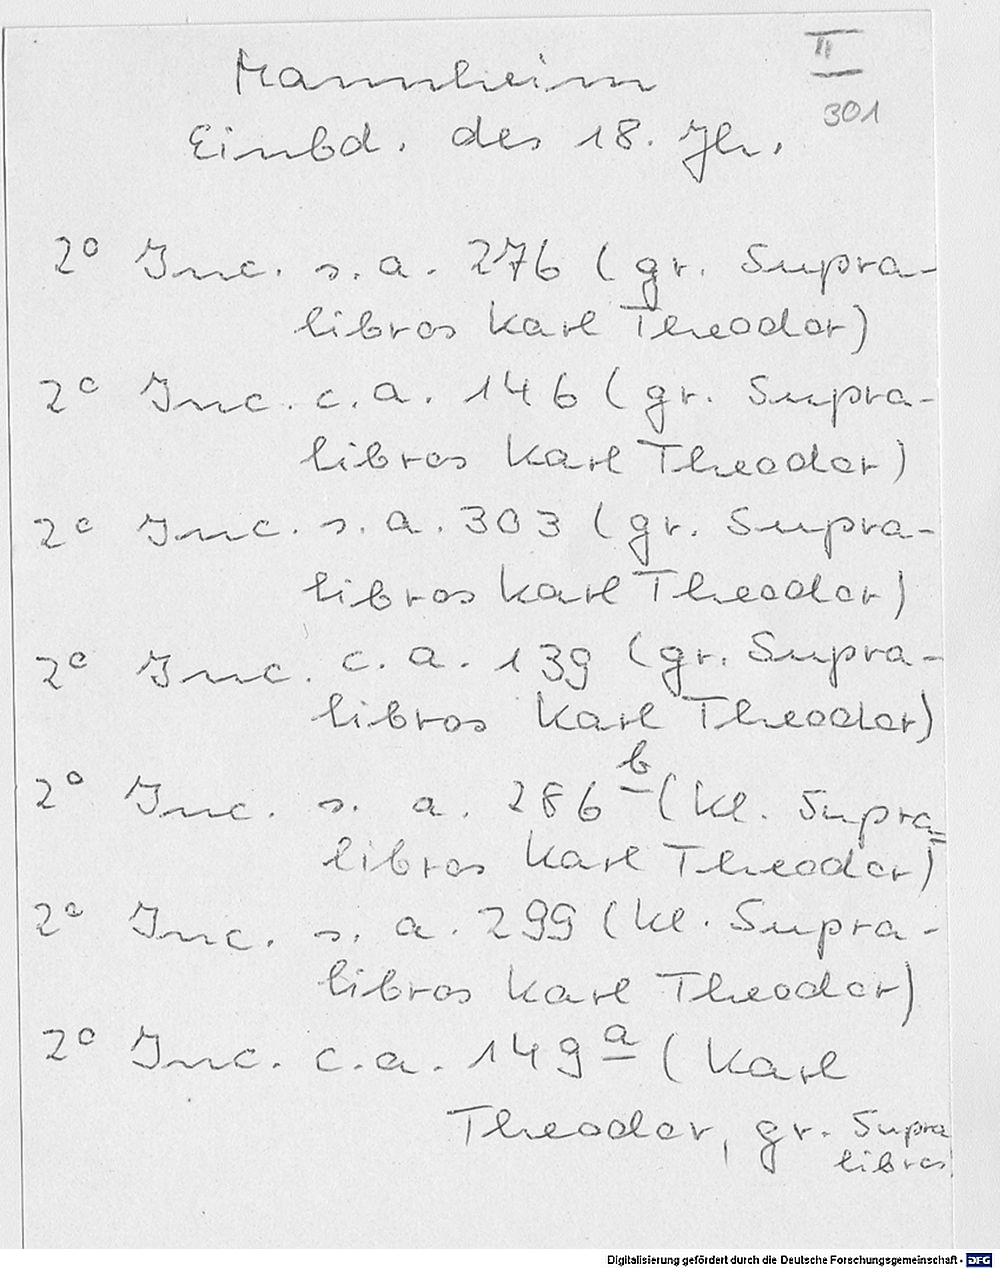 Mannheim
II
301
Einbd. des 18. Jh.
2° Inc. s. a. 276 (gr. Supra-
libros Karl Theodor)
2° Inc. c. a. 146 (gr. Supra-
libros Karl Theodor)
2° Inc. s. a. 303 (gr. Supra-
libros Karl Theodor)
2° Inc. c. a. 139 (gr. Supra-
libros Karl Theodor)
2° Inc. s. a. 286 b (kl. Supra=
libros Karl Theodor)
2° Inc. s. a. 299 (kl. Supra-
libros Karl Theodor)
2° Inc. c. a. 149 a (Karl
Theodor, gr. Supra
libros)
Digitalisierung gefördert durch die Deutsche Forschungsgemeinschaft - DFG